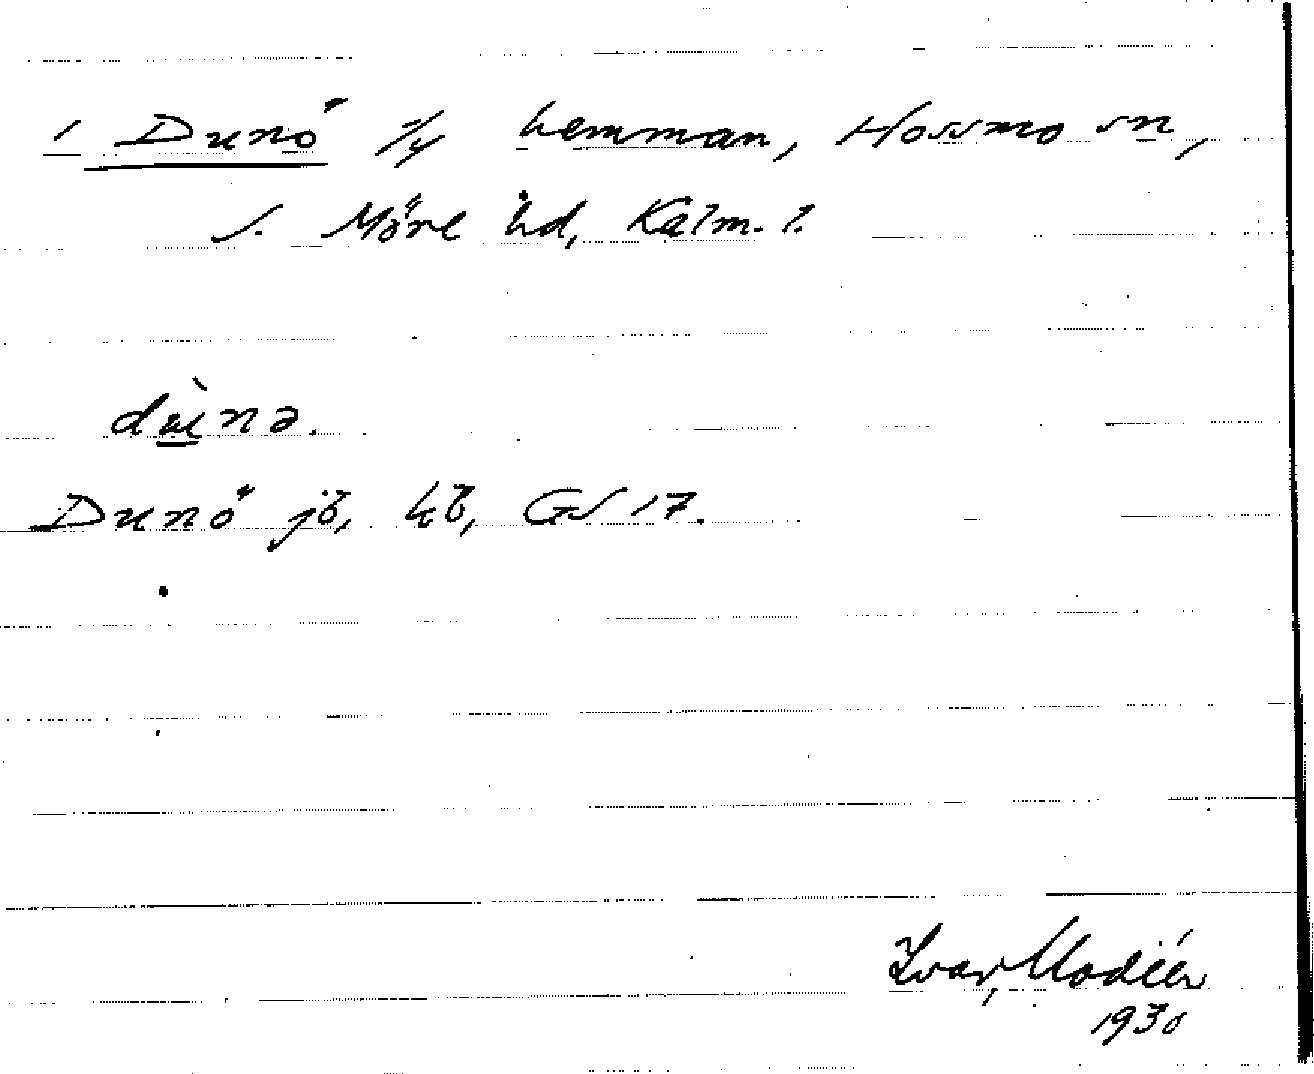 1 Dunö 1/4 hemman, Hossmo sn,
S. Möre hd, Kalm. l.
dù̱nə.
Dunö jb, kb, GS 17.
Ivar Modéer
1930